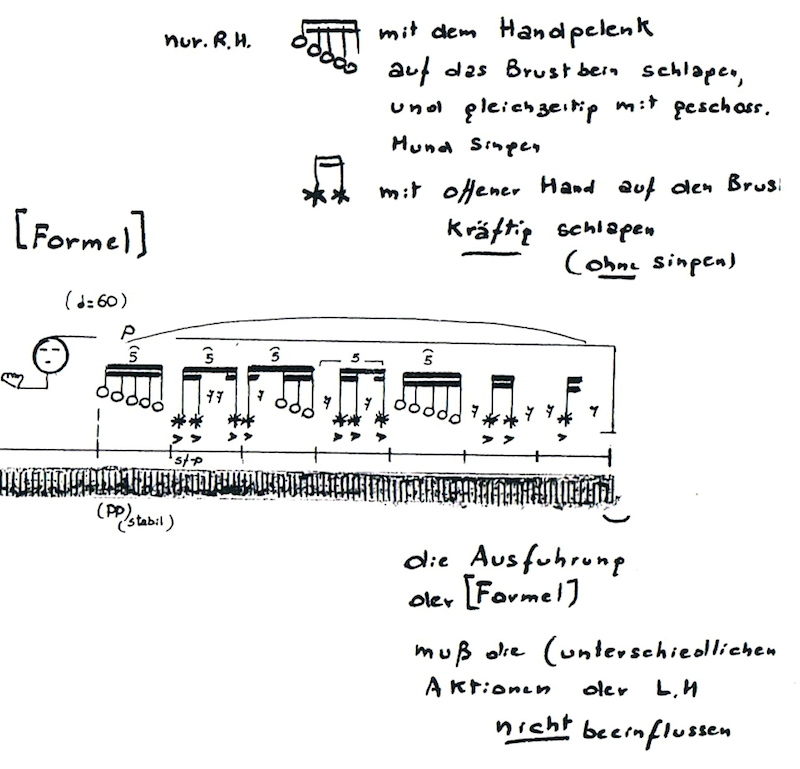 nur. R.H.
mit dem Handgelenk
auf das Brustbein schlagen,
und gleichzeitig mit geschoss.
Mund singen
mit offener Hand auf den Brus
kräftig schlagen
(ohne singen)
[Formel]
(♩=60)
P
5 5 5 5 5
s/p
(pp) (stabil)
die Ausfuhrung
der [Formel]
muß die (unterschiedlichen
Aktionen der L.H
nicht beeinflussen